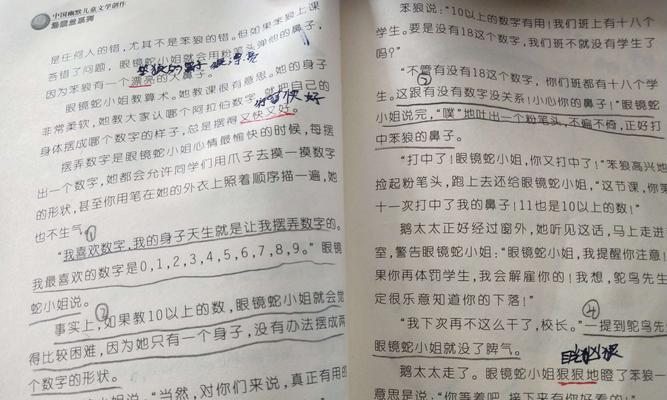 中国幽默儿童文学创作
是任何人的错，尤其不是笨狼的错。但如果笨狼上课
答错了问题，眼镜蛇小姐就会用粉笔头弹他的鼻子，
因为笨狼有一个漂亮的大鼻子。
眼镜蛇小姐教算术。她教课很有意思。她的身子
非常柔软，她教大家认哪个阿拉伯数字，就把自己的
身体摆成哪个数字的样子，总是摆得又快又好。
摆弄数字是眼镜蛇小姐心情最愉快的时候，每摆
出一个数字，她都会允许同学们用爪子去摸一摸数字
的形状，甚至你用笔在她的外衣上照着顺序描一遍，她
也不生气。
①
“我喜欢数字，我的身子天生就是让我摆弄数字的。
我最喜欢的数字是0，1，2，3，4，5，6，7，8，9。”眼镜
蛇小姐说。
②
事实上，如果教10以上的数，眼镜蛇小姐就会觉
得比较困难，因为她只有一个身子，没有办法摆成两
个数字的形状。
小姐说：“当然，对你们来说，真正有用的
笨狼说：“10以上的数字有用！我们班上有十八个
学生。要是没有18这个数字，我们班不就没有学生了
吗？”
③
“不管有没有18这个数字，你们班都有十八个学
生。这跟有没有数字没关系！小心你的鼻子！”眼镜蛇
小姐说完，“噗”地吐出一个粉笔头，不偏不倚，正好打
中笨狼的鼻子。
“打中了！眼镜蛇小姐，你又打中了！”笨狼高兴地
捡起粉笔头，跑上去还给眼镜蛇小姐，“这节课，你第
十一次打中了我的鼻子！11也是10以上的数！”
鹅太太正好经过窗外，她听见这话，马上走进
室，警告眼镜蛇小姐：“眼镜蛇小姐，我提醒你注意！
果你再体罚学生，我会解雇你的！我想，鸵鸟先
定很乐意知道你的下落！”
④
“我下次再不这么干了，校长。”一提到鸵鸟先
眼镜蛇小姐就没了脾气。
鹅太太走了。眼镜蛇小姐狠狠地瞪了笨狼一
意思是说：“你等着吧，接下来有你好看的！”